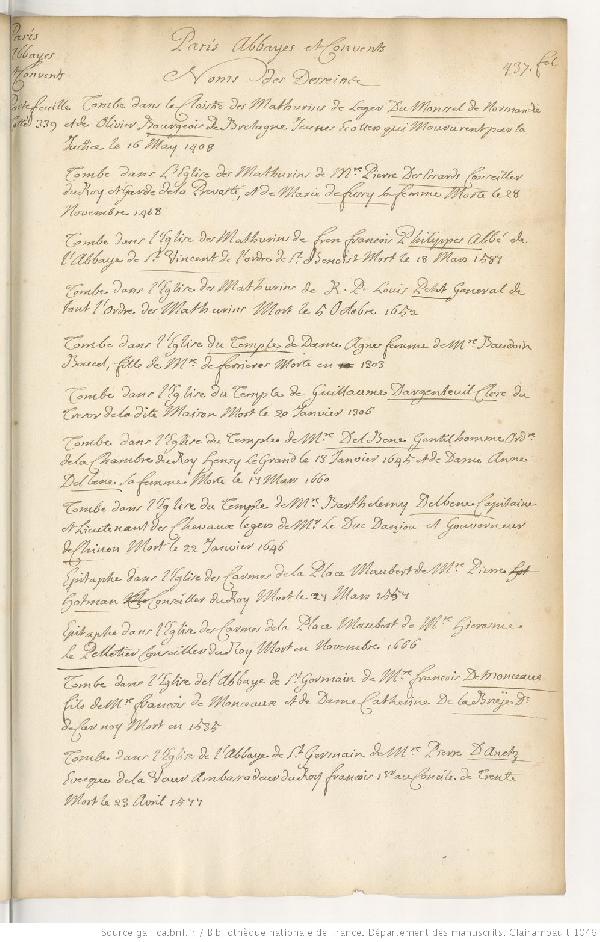 Paris Abbayes et Convents
437. fol.
Paris
Abbayes
et Convents
Noms des Desseins
Portefeuille
339
Tombe dans le Cloistre des Mathurins de Leger Du Moussel de Normandie
et de Olivier Bourgeois de Bretagne Jeunes Ecoliers qui Moururent par la
Justice le 16 May 1408
Tombe dans L'Eglise des Mathurins de Mre Pierre Des Essards Conseiller
du Roy et Garde de la Prevosté, et de Marie de sa femme Morte le 28
Novembre 1468
Tombe dans l'Eglise des Mathurins de frere francois Philippes Abbé de
l'Abbaye de St Vincent de l'ordre de St Benoist Mort le 18 Mars 1581
Tombe dans l'Eglise des Mathurins de R. P. Louis Petit General de
tout l'Ordre des Mathurins Mort le 5 Octobre 1652
Tombe dans l'Eglise du Temple de Dame Agnes femme de Mre Baudoin
fille de Mre de ferrieres Morte en 1303
Tombe dans l'Eglise du Temple de Guillaume Dargenteuil Clerc du
Tresor de la dite Maison Mort le 20 Janvier 1306
Tombe dans l'Eglise du Temple de Mre Del Bene Gentilhomme Ordre
de la Chambre du Roy Henry Le Grand le 13 Janvier 1645 et de Dame Anne
Delbene sa femme Morte le 17 Mars 1660
Tombe dans l'Eglise du Temple de Mre Barthelemy Delbene Capitaine
et Lieutenant des Chevaux legers de Mr Le Duc Danjou et Gouverneur
de Chinon Mort le 22 Janvier 1646
Epitaphe dans l'Eglise des Carmes de la Place Maubert de Mre Pierre
Hotman Conseiller du Roy Mort le 27 Mars
Epitaphe dans l'Eglise des Carmes de la Place Maubert de Mre Hierosme
le Pelletier Conseiller du Roy Mort en Novembre 1666
Tombe dans l'Eglise de l'Abbaye de St Germain de Mre francois De Monceaux
fils de Mre francois de Monceaux et de Dame Catherine De la
Mort en 1535
Tombe dans l'Eglise de l'Abbaye de St Germain de Mre Pierre Danetz
Evecque de la Vaur Ambassadeur du Roy francois 1er au Concile de Trente
Mort le 23 Avril 1577
Source gallica.bnf.fr / Bibliothèque nationale de France. Département des manuscrits. Clairambault 1046